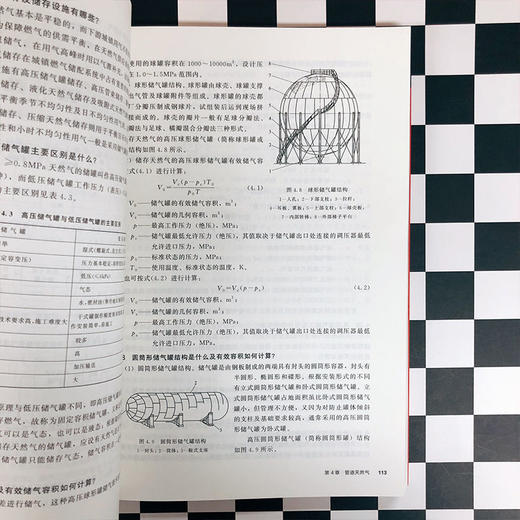 及储存设施有哪些？
气基本是平稳的，而下游城镇
为保障燃气的供需平衡，在天然气
储气，在用气高峰时用以气源补充
储存在城镇燃气储配系统中占有重
设施有高压储气罐储存、高压管束储
、液化天然气储存及吸附式天
平衡季节不均匀性及日不均匀
储存、压缩天然气储存则用于平衡
性和小时不均匀性用气一般是采用储气
储气罐主要区别是什么？
≥0.8MPa 天然气的储罐叫作高压储气
，而低压储气罐工作压力（表压）
的主要区别见表 4.3。
4.3 高压储气罐与低压储气罐的主要区别
储气罐
湿式（螺旋式、直立式）
压力基本稳定，
低压（＜
气态
技术要求高，施工难度大
较多
高
加压输送
大
原理与低压储气罐不同，即高压
燃气，故称为固定容积储气罐。
可以是气态，也可以是液态，根据
存天然气的储气罐，应设有天然
储气罐只能储存气态，低
及有效储气容积如何计算？
差进行储气，这种高压球形罐储气
使用的球罐容积在 1000～10000m³，设计压
在 1.0～1.5MPa 范围内。
球形储气罐结构，球形罐由球壳、球罐支撑
出气管及罐附件等组成。球形罐的球壳都
丁分瓣压制成钢球片，试组装后运到现场拼
接而成的。球壳的瓣片一般有足球分瓣法、
瓣法与足球、橘瓣混合分瓣法三种形式。
存天然气的高压球形储气罐（简称球形罐或
结构如图 4.8 所示。
）储存天然气的高压球形储气罐有效储气容
式(4.1) 进行计算。
V₀=Vc(p−pc)T₀/p₀T (4.1)
V₀——储气罐的有效储气容积，m³；
Vc——储气罐的几何容积，m³；
p——最高工作压力（绝压），MPa；
pc——储气罐最低允许压力（绝压），其值取决于储气罐出口处连接的调压器最低
允许进口压力，MPa；
p₀——标准状态的压力，MPa；
T₀——使用温度、标准状态的温度，K。
也可按式(4.2) 进行计算。
V₀=Vc(p−pc) (4.2)
V₀——储气罐的有效储气容积，m³；
Vc——储气罐的几何容积，m³；
p——最高工作压力（绝压），MPa；
pc——储气罐最低允许压力（绝压），其值取决于储气罐出口处连接的调压器最低
允许进口压力，MPa。
图 4.8 球形储气罐结构
1—人孔；2—下部支柱；3—拉杆；
圆筒形储气罐结构是什么及有效容积如何计算？
(1) 圆筒形储气罐结构，储气罐是由钢板制成的两端具有封头的圆筒形容器，封头有
半圆形、椭圆形和碟形。根据安装形式的不同
有立式圆筒形储气罐和卧式圆筒形储气罐。立
式圆筒形储气罐占地面积虽比卧式圆筒形储气罐
小，但管理不方便，又因为对防止罐体倾斜
的支柱及基础要求较高，通常采用的高压圆筒
形储气罐为卧式罐。
高压圆筒形储气罐（简称圆筒形罐）结构
如图 4.9 所示。
图 4.9 圆筒形储气罐结构
1—封头；2—筒体；3—鞍式支座
第 4 章 管道天然气 113